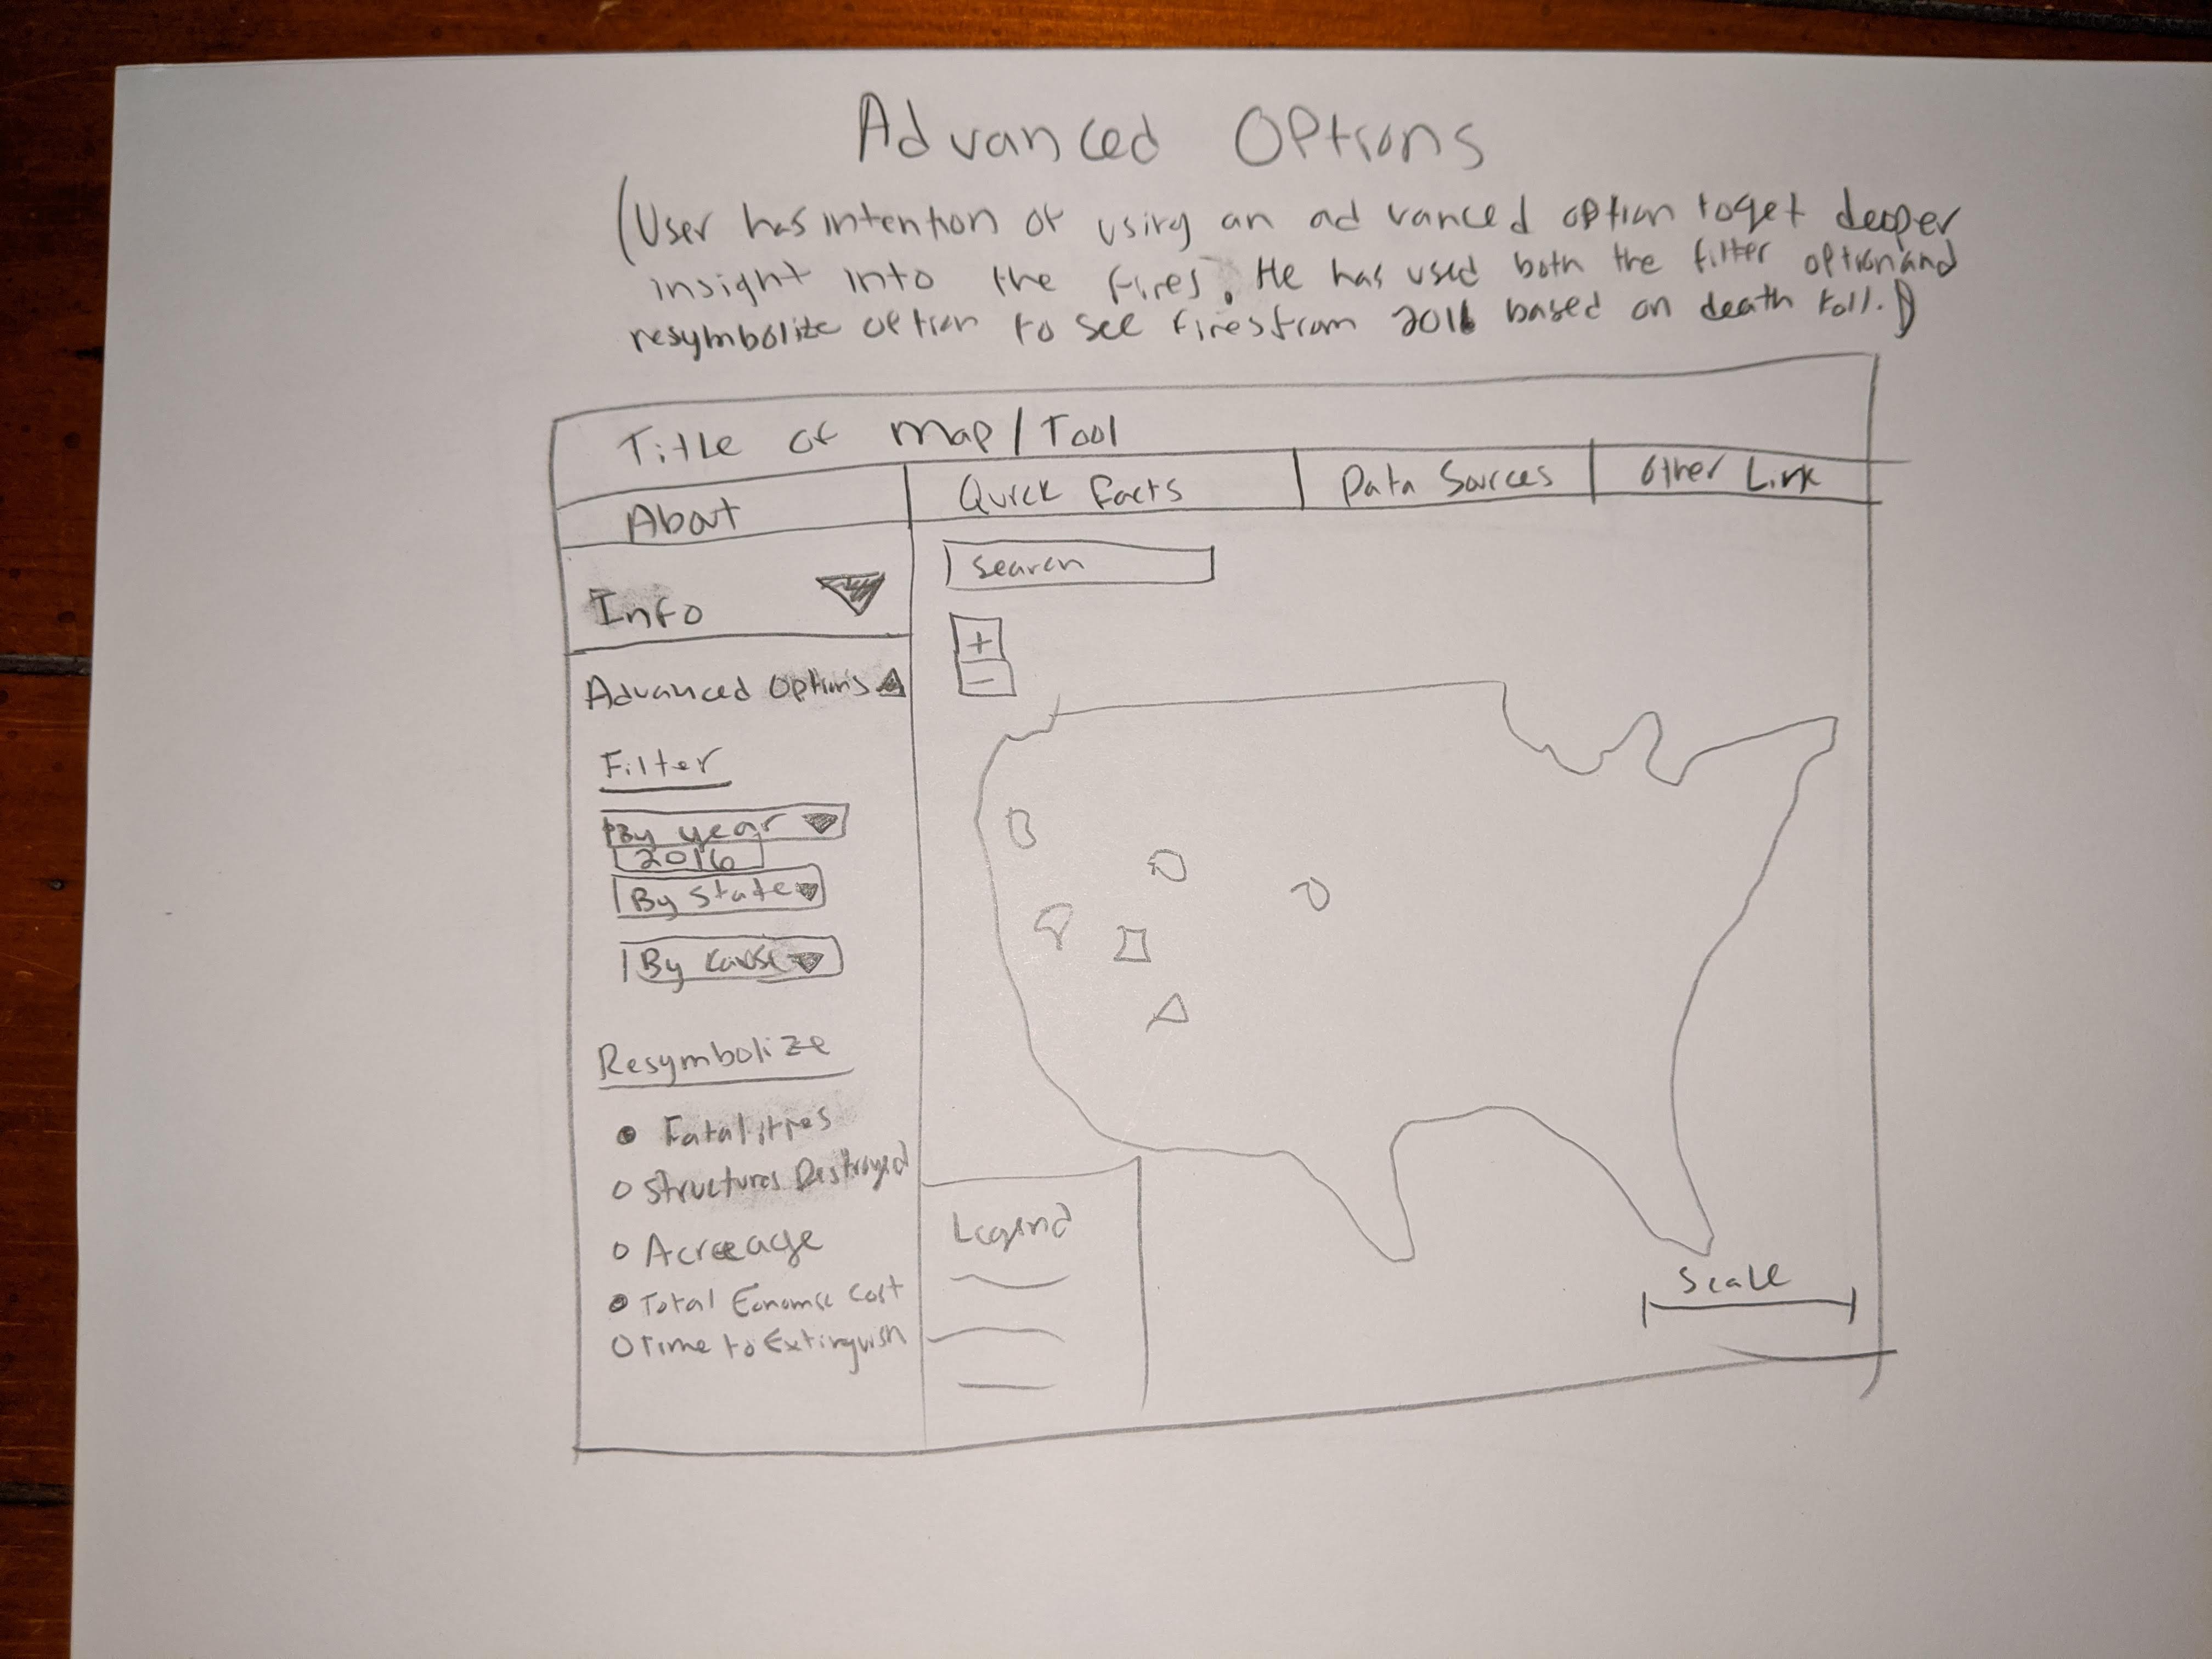 Advanced Options
(User has intention of using an advanced option to get deeper
insight into the fires. He has used both the filter option and
resymbolize option to see fires from 2016 based on death toll.)
Title of Map/Tool
About
Quick Facts
Data Sources
Other Link
Info
Search
+
-
Advanced Options
Filter
By year
2016
By State
By cause
Resymbolize
Fatalities
Structures Destroyed
Acreage
Total Econmic Cost
Time to Extinguish
Legend
Scale